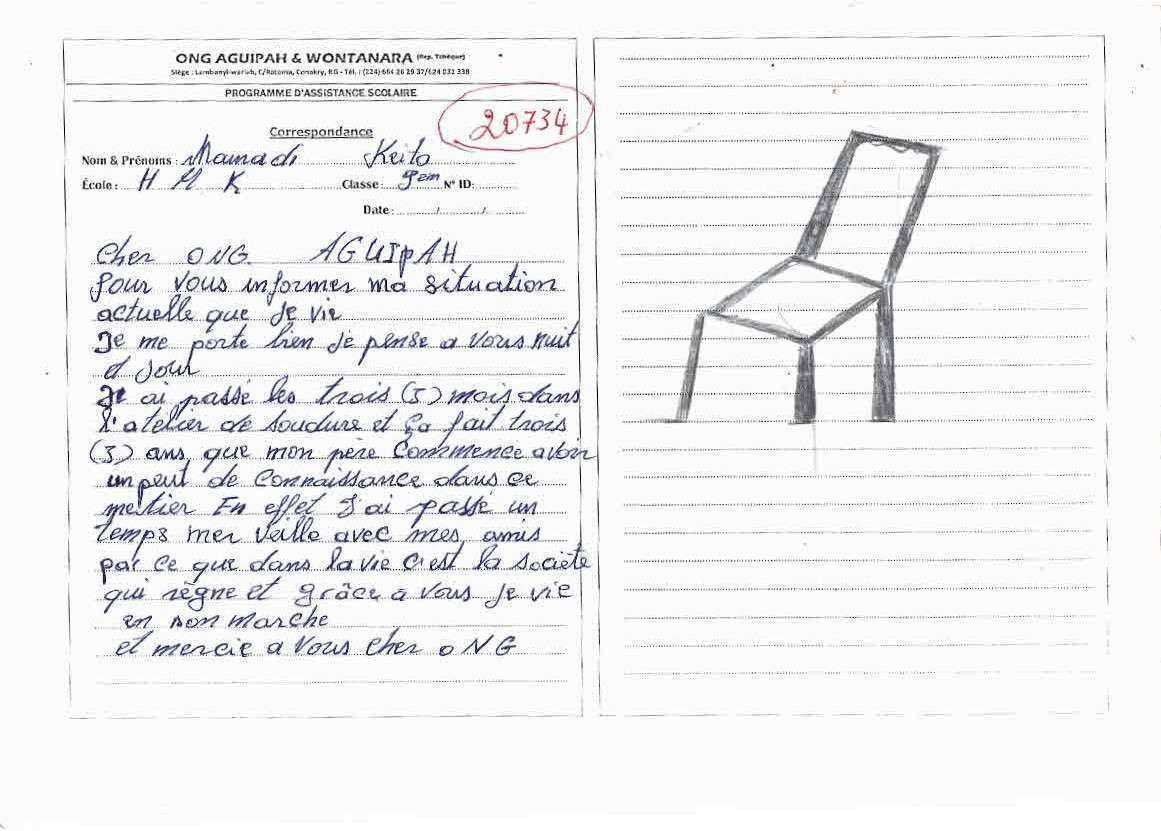 ONG AGUIPAH & WONTANARA (Rep. Tchèque)
Siège : Lambanyi-warish, C/Ratoma, Conakry, RG - Tél. : (224) 664 26 29 37/624 031 338
PROGRAMME D'ASSISTANCE SCOLAIRE
20734
Correspondance
Nom & Prénoms : Mamadi Keita
École : H M K Classe : 9em N° ID:
Date : / /
Cher ONG AGUIPAH
Pour vous informer ma situation
actuelle que je vie
Je me porte bien je pense a vous nuit
et jour
Je ai passé les trois (3) mois dans
l'atelier de soudure et ça fait trois
(3) ans, que mon père Commence avoir
un peut de connaissance dans ce
metier En effet J'ai passé un
temps mer veille avec mes amis
par ce que dans la vie c'est la société
qui règne et grâce a vous je vie
en bon marche
et mercie a vous cher ONG